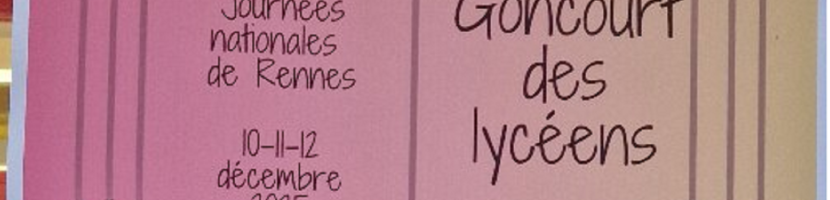 Journées
nationales
de Rennes
10-11-12
décembre
Goncourt
des
lycéens